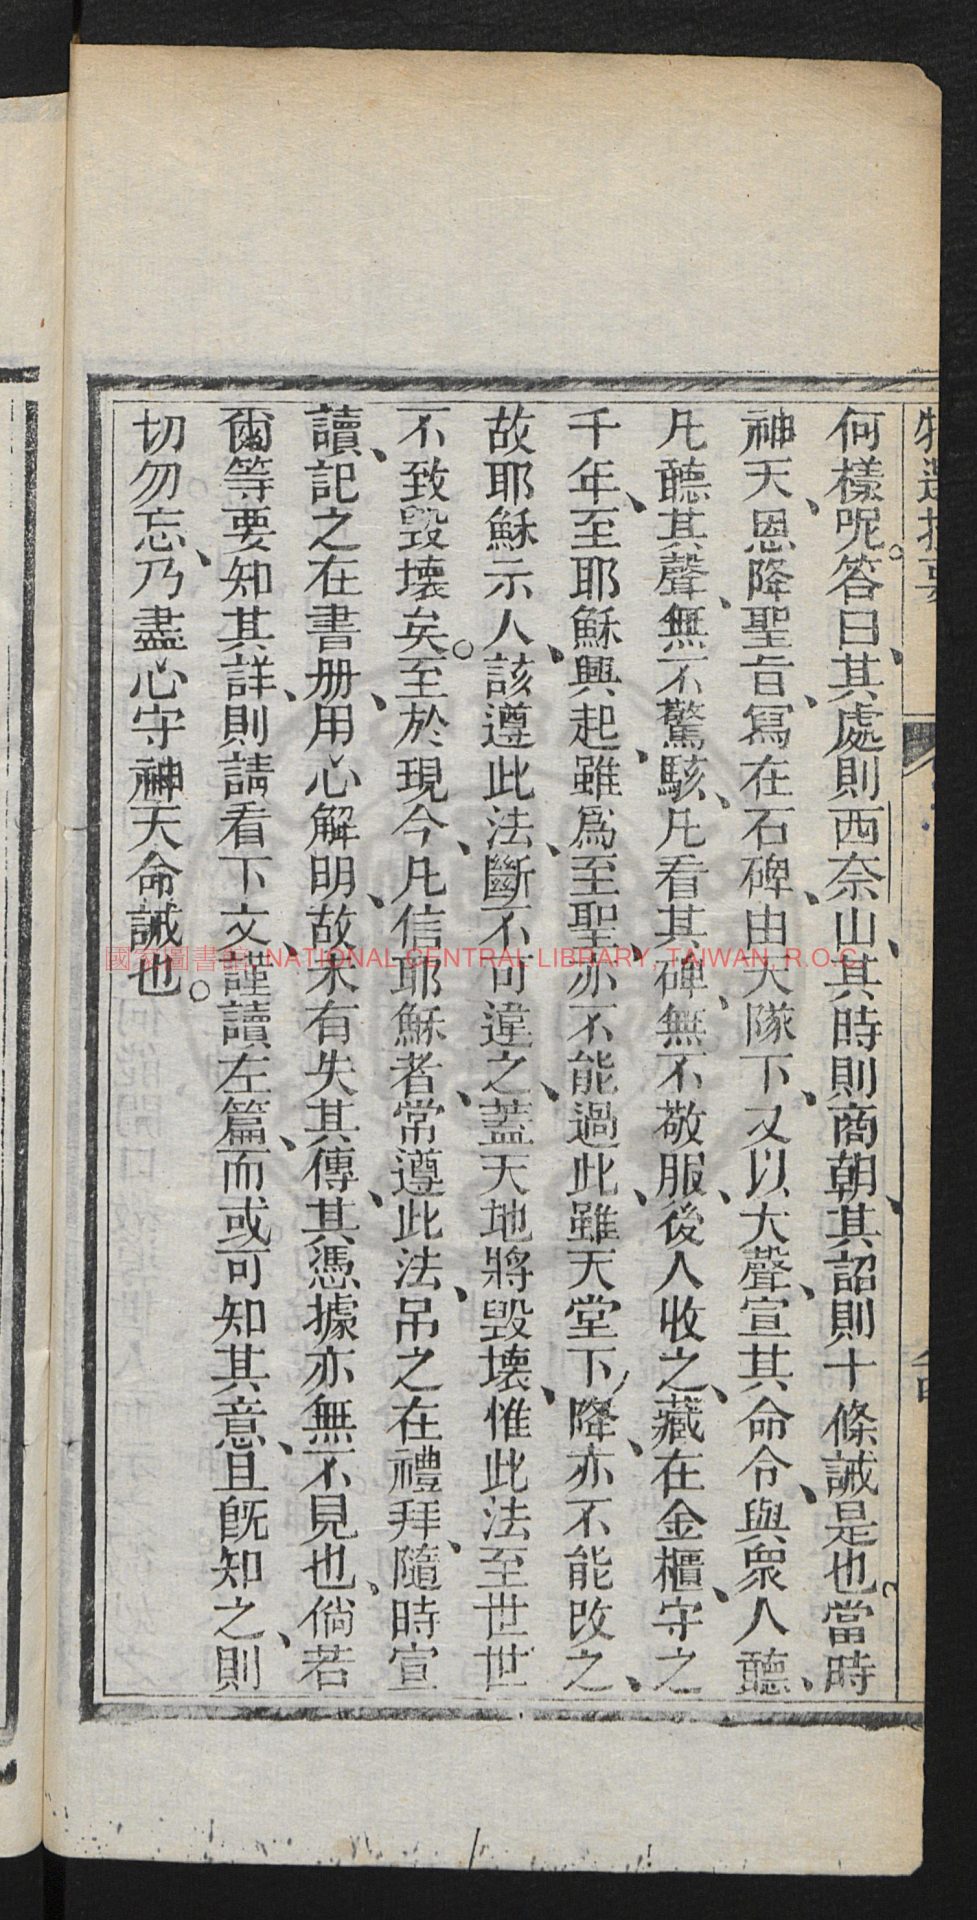 何樣呢。答曰、其處則西奈山、其時則商朝、其詔則十條誡是也。當時
神天、恩降聖旨、寫在石碑、由天隊下、又以大聲、宣其命令、與衆人聽、
凡聽其聲、無不驚駭、凡看其碑、無不敬服、後人收之、藏在金櫃、守之
千年、至耶穌興起、雖爲至聖、亦不能過此、雖天堂下降、亦不能改之、
故耶穌示人、該遵此法、斷不可違之、蓋天地將毀壞、惟此法至世世
不致毀壞矣。至於現今、凡信耶穌者、常遵此法、吊之在禮拜、隨時宣
讀、記之在書册、用心解明、故未有失其傳、其憑據亦無不見也、倘若
爾等要知其詳、則請看下文、謹讀左篇、而或可知其意、且旣知之、則
切勿忘、乃盡心守神天命誡也。
國家圖書館 NATIONAL CENTRAL LIBRARY, TAIWAN, R.O.C.